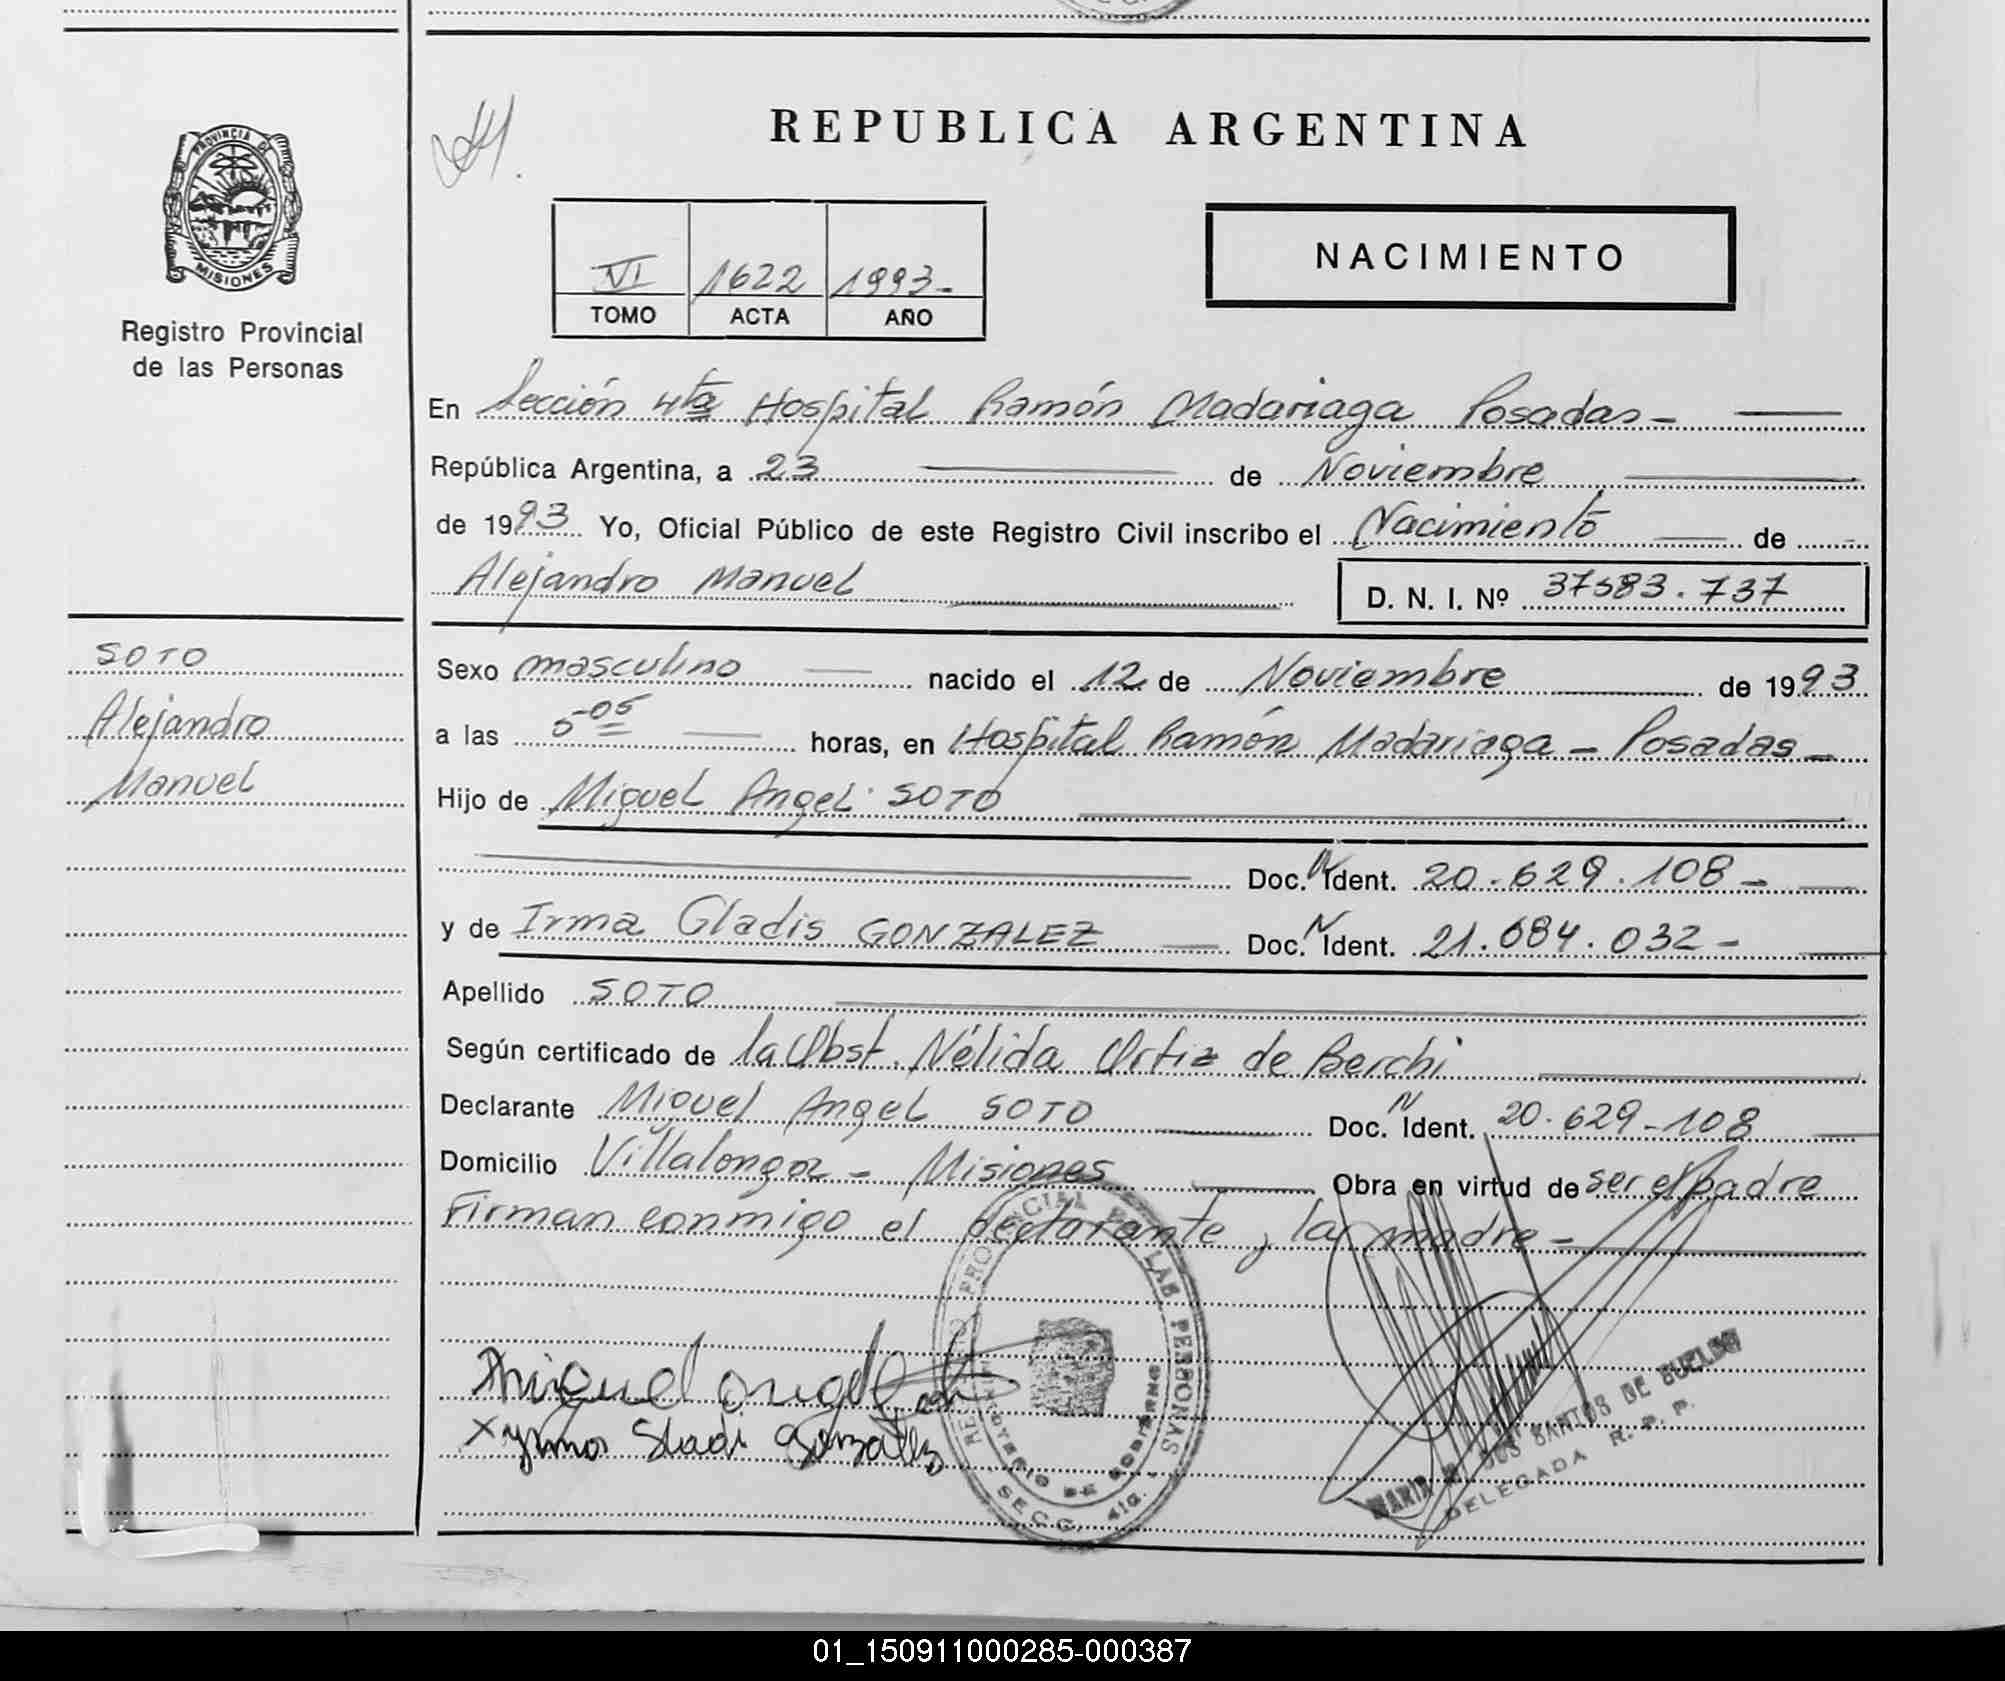 PROVINCIA DE
MISIONES
Registro Provincial
de las Personas
SOTO
Alejandro
Manuel
REPUBLICA ARGENTINA
VI 1622 1993-
TOMO ACTA AÑO
NACIMIENTO
En Sección 4ta Hospital Ramón Madariaga Posadas-
República Argentina, a 23 de Noviembre
de 1993 Yo, Oficial Público de este Registro Civil inscribo el Nacimiento de
Alejandro Manuel D. N. I. Nº 37583.737
Sexo masculino nacido el 12 de Noviembre de 1993
a las 5-05 horas, en Hospital Ramón Madariaga - Posadas-
Hijo de Miguel Angel SOTO
Doc. N Ident. 20.629.108-
y de Irma Gladis GONZALEZ Doc. N Ident. 21.684.032-
Apellido SOTO
Según certificado de la Obst. Nélida Ortiz de Berchi
Declarante Miguel Angel SOTO Doc. N Ident. 20.629-108
Domicilio Villalonga - Misiones Obra en virtud de ser el padre
Firman conmigo el declarante, la madre-
REGISTRO PROVINCIAL DE LAS PERSONAS
MINISTERIO DE GOBIERNO
SECC. 4ta.
Miguel angel
gonzalez
MARIA DOS SANTOS DE
DELEGADA R. P. P.
01_150911000285-000387